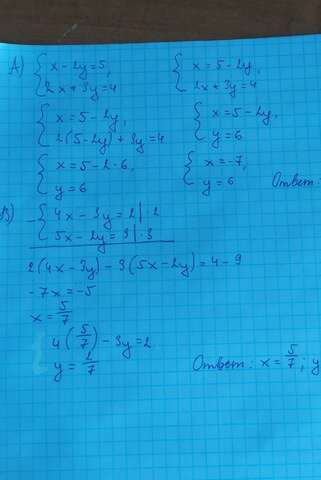 А) { x - 2y = 5, { x = 5 - 2y,
2x + 3y = 4 2x + 3y = 4
{ x = 5 - 2y, { x = 5 - 2y,
2(5 - 2y) + 3y = 4 y = 6
{ x = 5 - 2 · 6, { x = -7,
y = 6 y = 6 Ответ:
В) { 4x - 3y = 2 | · 2
5x - 2y = 3 | · 3
2(4x - 3y) - 3(5x - 2y) = 4 - 9
-7x = -5
x = 5/7
4(5/7) - 3y = 2
y = 2/7 Ответ: x = 5/7; y